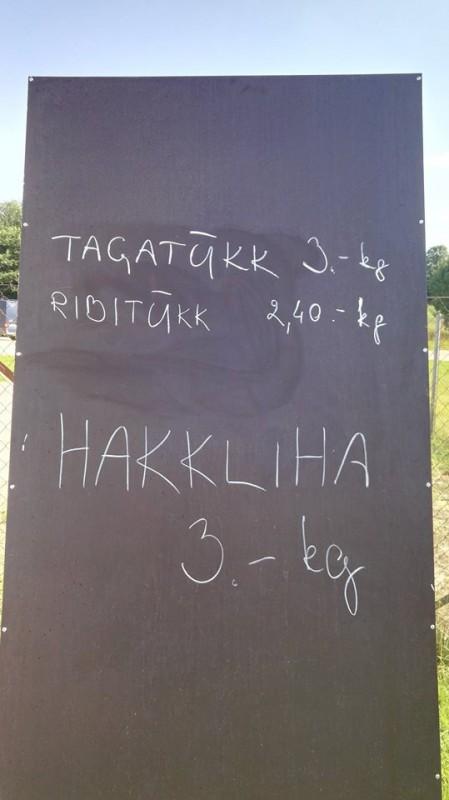 TAGATÜKK 3.- kg
RIBITÜKK 2,40.- kg
HAKKLIHA
3.- kg